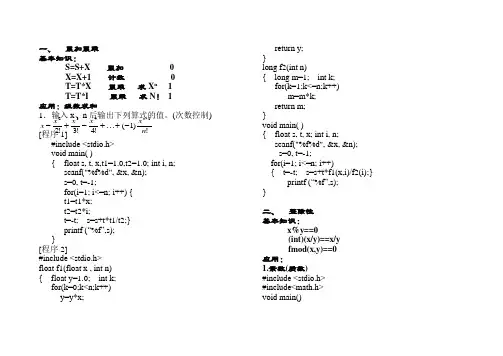 一、 累加累乘
基本知识:
S=S+X 累加 0
X=X+1 计数 0
T=T*X 累乘 求Xⁿ 1
T=T*I 累乘 求N! 1
应用:级数求和
1.输入x、n后输出下列算式的值。(次数控制)
[程序1]
#include <stdio.h>
void main( )
{ float s, t, x,t1=1.0,t2=1.0; int i, n;
scanf("%f%d", &x, &n);
s=0, t=-1;
for(i=1; i<=n; i++) {
t1=t1*x;
t2=t2*i;
t=-t; s=s+t*t1/t2;}
printf ("%f",s);
}
[程序2]
#include <stdio.h>
float f1(float x , int n)
{ float y=1.0; int k;
for(k=0;k<n;k++)
y=y*x;
return y;
}
long f2(int n)
{ long m=1; int k;
for(k=1;k<=n;k++)
m=m*k;
return m;
}
void main( )
{ float s, t, x; int i, n;
scanf("%f%d", &x, &n);
s=0, t=-1;
for(i=1; i<=n; i++)
{ t=-t; s=s+t*f1(x,i)/f2(i);}
printf ("%f",s);
}
二、 整除性
基本知识:
x%y==0
(int)(x/y)==x/y
fmod(x,y)==0
应用:
1.素数(质数)
#include <stdio.h>
#include<math.h>
void main()